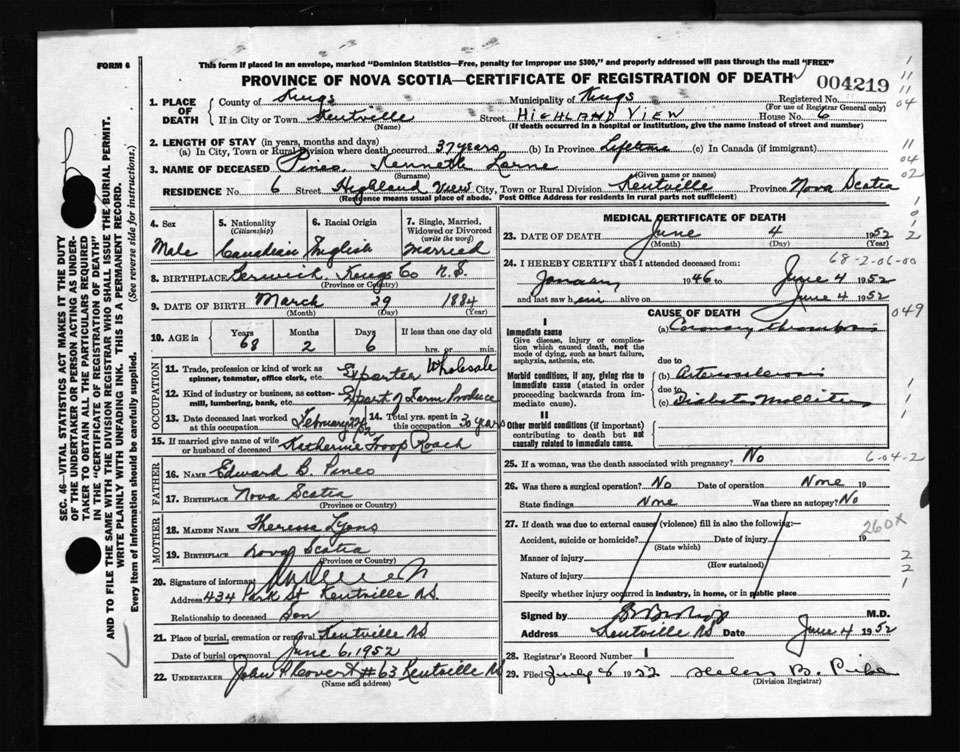 FORM 6
This form if placed in an envelope, marked "Dominion Statistics—Free, penalty for improper use $300," and properly addressed will pass through the mail "FREE"
PROVINCE OF NOVA SCOTIA—CERTIFICATE OF REGISTRATION OF DEATH
004219
1. PLACE OF DEATH
County of Kings Municipality of Kings Registered No.
(For use of Registrar General only)
If in City or Town Kentville Street HIGHLAND VIEW House No. 6
(Name) (If death occurred in a hospital or institution, give the name instead of street and number)
2. LENGTH OF STAY (in years, months and days)
(a) In City, Town or Rural Division where death occurred 37 years (b) In Province Lifetime (c) In Canada (if immigrant)
3. NAME OF DECEASED Kenneth
(Surname) (Given name or names)
RESIDENCE No. 6 Street Highland View City, Town or Rural Division Kentville Province Nova Scotia
(Residence means usual place of abode. Post Office Address for residents in rural parts not sufficient)
4. Sex
Male
5. Nationality (Citizenship)
Canadian
6. Racial Origin
English
7. Single, Married, Widowed or Divorced (write the word)
Married
8. BIRTHPLACE Berwick, Kings Co N.S.
(Province or Country)
9. DATE OF BIRTH March 29 1884
(Month) (Day) (Year)
10. AGE in Years Months Days If less than one day old
68 2 6 hrs. or min.
OCCUPATION
11. Trade, profession or kind of work as spinner, teamster, office clerk, etc. Exporter Wholesale
12. Kind of industry or business, as cotton-mill, lumbering, bank, etc. Export of Farm Produce
13. Date deceased last worked at this occupation February 14. Total yrs. spent in this occupation 30 years
15. If married give name of wife or husband of deceased Katherine Troop Roach
FATHER
16. NAME Edward B.
17. BIRTHPLACE Nova Scotia
(Province or Country)
MOTHER
18. MAIDEN NAME Theressa Lyons
19. BIRTHPLACE Nova Scotia
(Province or Country)
20. Signature of informant
Address 434 Park St Kentville N.S.
Relationship to deceased Son
21. Place of burial, cremation or removal Kentville NS
Date of burial or removal June 6, 1952
22. UNDERTAKER John #63 Kentville NS
(Name and address)
MEDICAL CERTIFICATE OF DEATH
23. DATE OF DEATH June 4 1952
(Month) (Day) (Year)
68-2-06-00
24. I HEREBY CERTIFY that I attended deceased from:
January 1946 to June 4 1952
and last saw him alive on June 4 1952
CAUSE OF DEATH
049
I
Immediate cause
Give disease, injury or complication which caused death, not the mode of dying, such as heart failure, asphyxia, asthenia, etc.
(a) Coronary thrombosis
due to
Morbid conditions, if any, giving rise to immediate cause (stated in order proceeding backwards from immediate cause).
(b) Arteriosclerosis
due to
(c) Diabetes Mellitus
II
Other morbid conditions (if important) contributing to death but not causally related to immediate cause.
25. If a woman, was the death associated with pregnancy? No
6-04-2
26. Was there a surgical operation? No Date of operation None 19
State findings None Was there an autopsy? No
27. If death was due to external causes (violence) fill in also the following:—
260X
Accident, suicide or homicide? Date of injury 19
(State which)
Manner of injury
(How sustained)
Nature of injury
Specify whether injury occurred in industry, in home, or in public place
Signed by M.D.
Address Kentville NS Date June 4 1952
28. Registrar's Record Number 1
29. Filed July 8 1952 Helen B.
(Division Registrar)
SEC. 46—VITAL STATISTICS ACT MAKES IT THE DUTY
OF THE UNDERTAKER OR PERSON ACTING AS UNDERTAKER
TO OBTAIN ALL THE PARTICULARS REQUIRED
IN THE "CERTIFICATE OF REGISTRATION OF DEATH"
AND TO FILE THE SAME WITH THE DIVISION REGISTRAR WHO SHALL ISSUE THE BURIAL PERMIT.
WRITE PLAINLY WITH UNFADING INK. THIS IS A PERMANENT RECORD.
Every item of information should be carefully supplied. (See reverse side for instructions.)